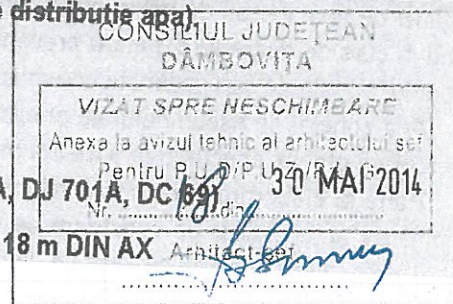 distributie apa)
CONSILIUL JUDEȚEAN
DÂMBOVIȚA
VIZAT SPRE NESCHIMBARE
Anexa la avizul tehnic al arhitectului șef
Pentru P.U.D/P.U.Z./P.U.G.
A, DJ 701A, DC
Nr. din 30 MAI 2014
18 m DIN AX
Arhitect-șef